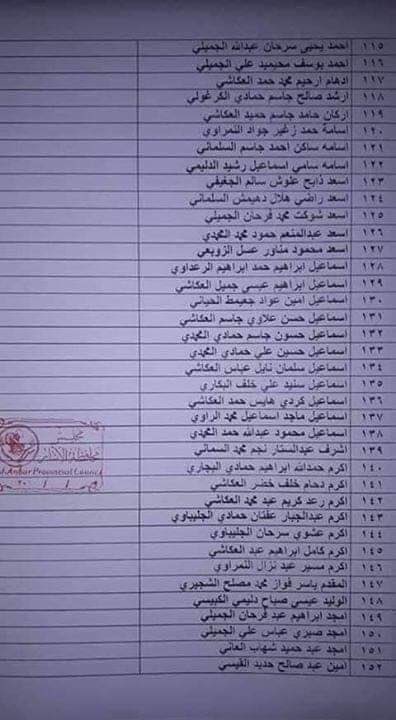 ١١٥ احمد يحيى سرحان عبدالله الجميلي
١١٦ احمد يوسف محيميد علي الجميلي
١١٧ ادهام ارحيم محمد حمد العكاشي
١١٨ ارشد صالح جاسم حمادي الكرغولي
١١٩ اركان حامد جاسم حميد العكاشي
١٢٠ اسامة حمد زغير جواد النمراوي
١٢١ اسامه ساكن احمد جاسم السلماني
١٢٢ اسامه سامي اسماعيل رشيد الدليمي
١٢٣ اسعد ذابح علوش سالم الجغيفي
١٢٤ اسعد راضي هلال دهيمش السلماني
١٢٥ اسعد شوكت محمد فرحان الجميلي
١٢٦ اسعد عبدالمنعم حمود محمد المحمدي
١٢٧ اسعد محمود مناور عسل الزوبعي
١٢٨ اسماعيل ابراهيم حمد ابراهيم الرعداوي
١٢٩ اسماعيل ابراهيم عيسى جميل العكاشي
١٣٠ اسماعيل امين عواد جعيمط الحياني
١٣١ اسماعيل حسن علاوي جاسم العكاشي
١٣٢ اسماعيل حسون جاسم حمادي المحمدي
١٣٣ اسماعيل حسين علي حمادي المحمدي
١٣٤ اسماعيل سلمان نايل عباس العكاشي
١٣٥ اسماعيل سنيد علي خلف البكاري
١٣٦ اسماعيل كردي هايس حمد العكاشي
١٣٧ اسماعيل ماجد اسماعيل محمد الراوي
١٣٨ اسماعيل محمود عبدالله حمد المحمدي
١٣٩ اشرف عبدالستار نجم محمد السماني
١٤٠ اكرم حمدالله ابراهيم حمادي البجاري
١٤١ اكرم دحام خلف خضر العكاشي
١٤٢ اكرم رعد كريم عبد محمد العكاشي
١٤٣ اكرم عبدالجبار عفتان حمادي الجليباوي
١٤٤ اكرم عشوي سرحان الجليباوي
١٤٥ اكرم كامل ابراهيم عبد العكاشي
١٤٦ اكرم مسير عبد نزال النمراوي
١٤٧ المقدم ياسر فواز محمد مصلح الشجيري
١٤٨ الوليد عيسى صباح دليمي الكبيسي
١٤٩ امجد ابراهيم عبد فرحان الجميلي
١٥٠ امجد صبري عباس علي الجميلي
١٥١ امجد عبد حميد شهاب العاني
١٥٢ امين عبد صالح حديد القيسي
مجلس
محافظة الانبار
Anbar Provincial Council